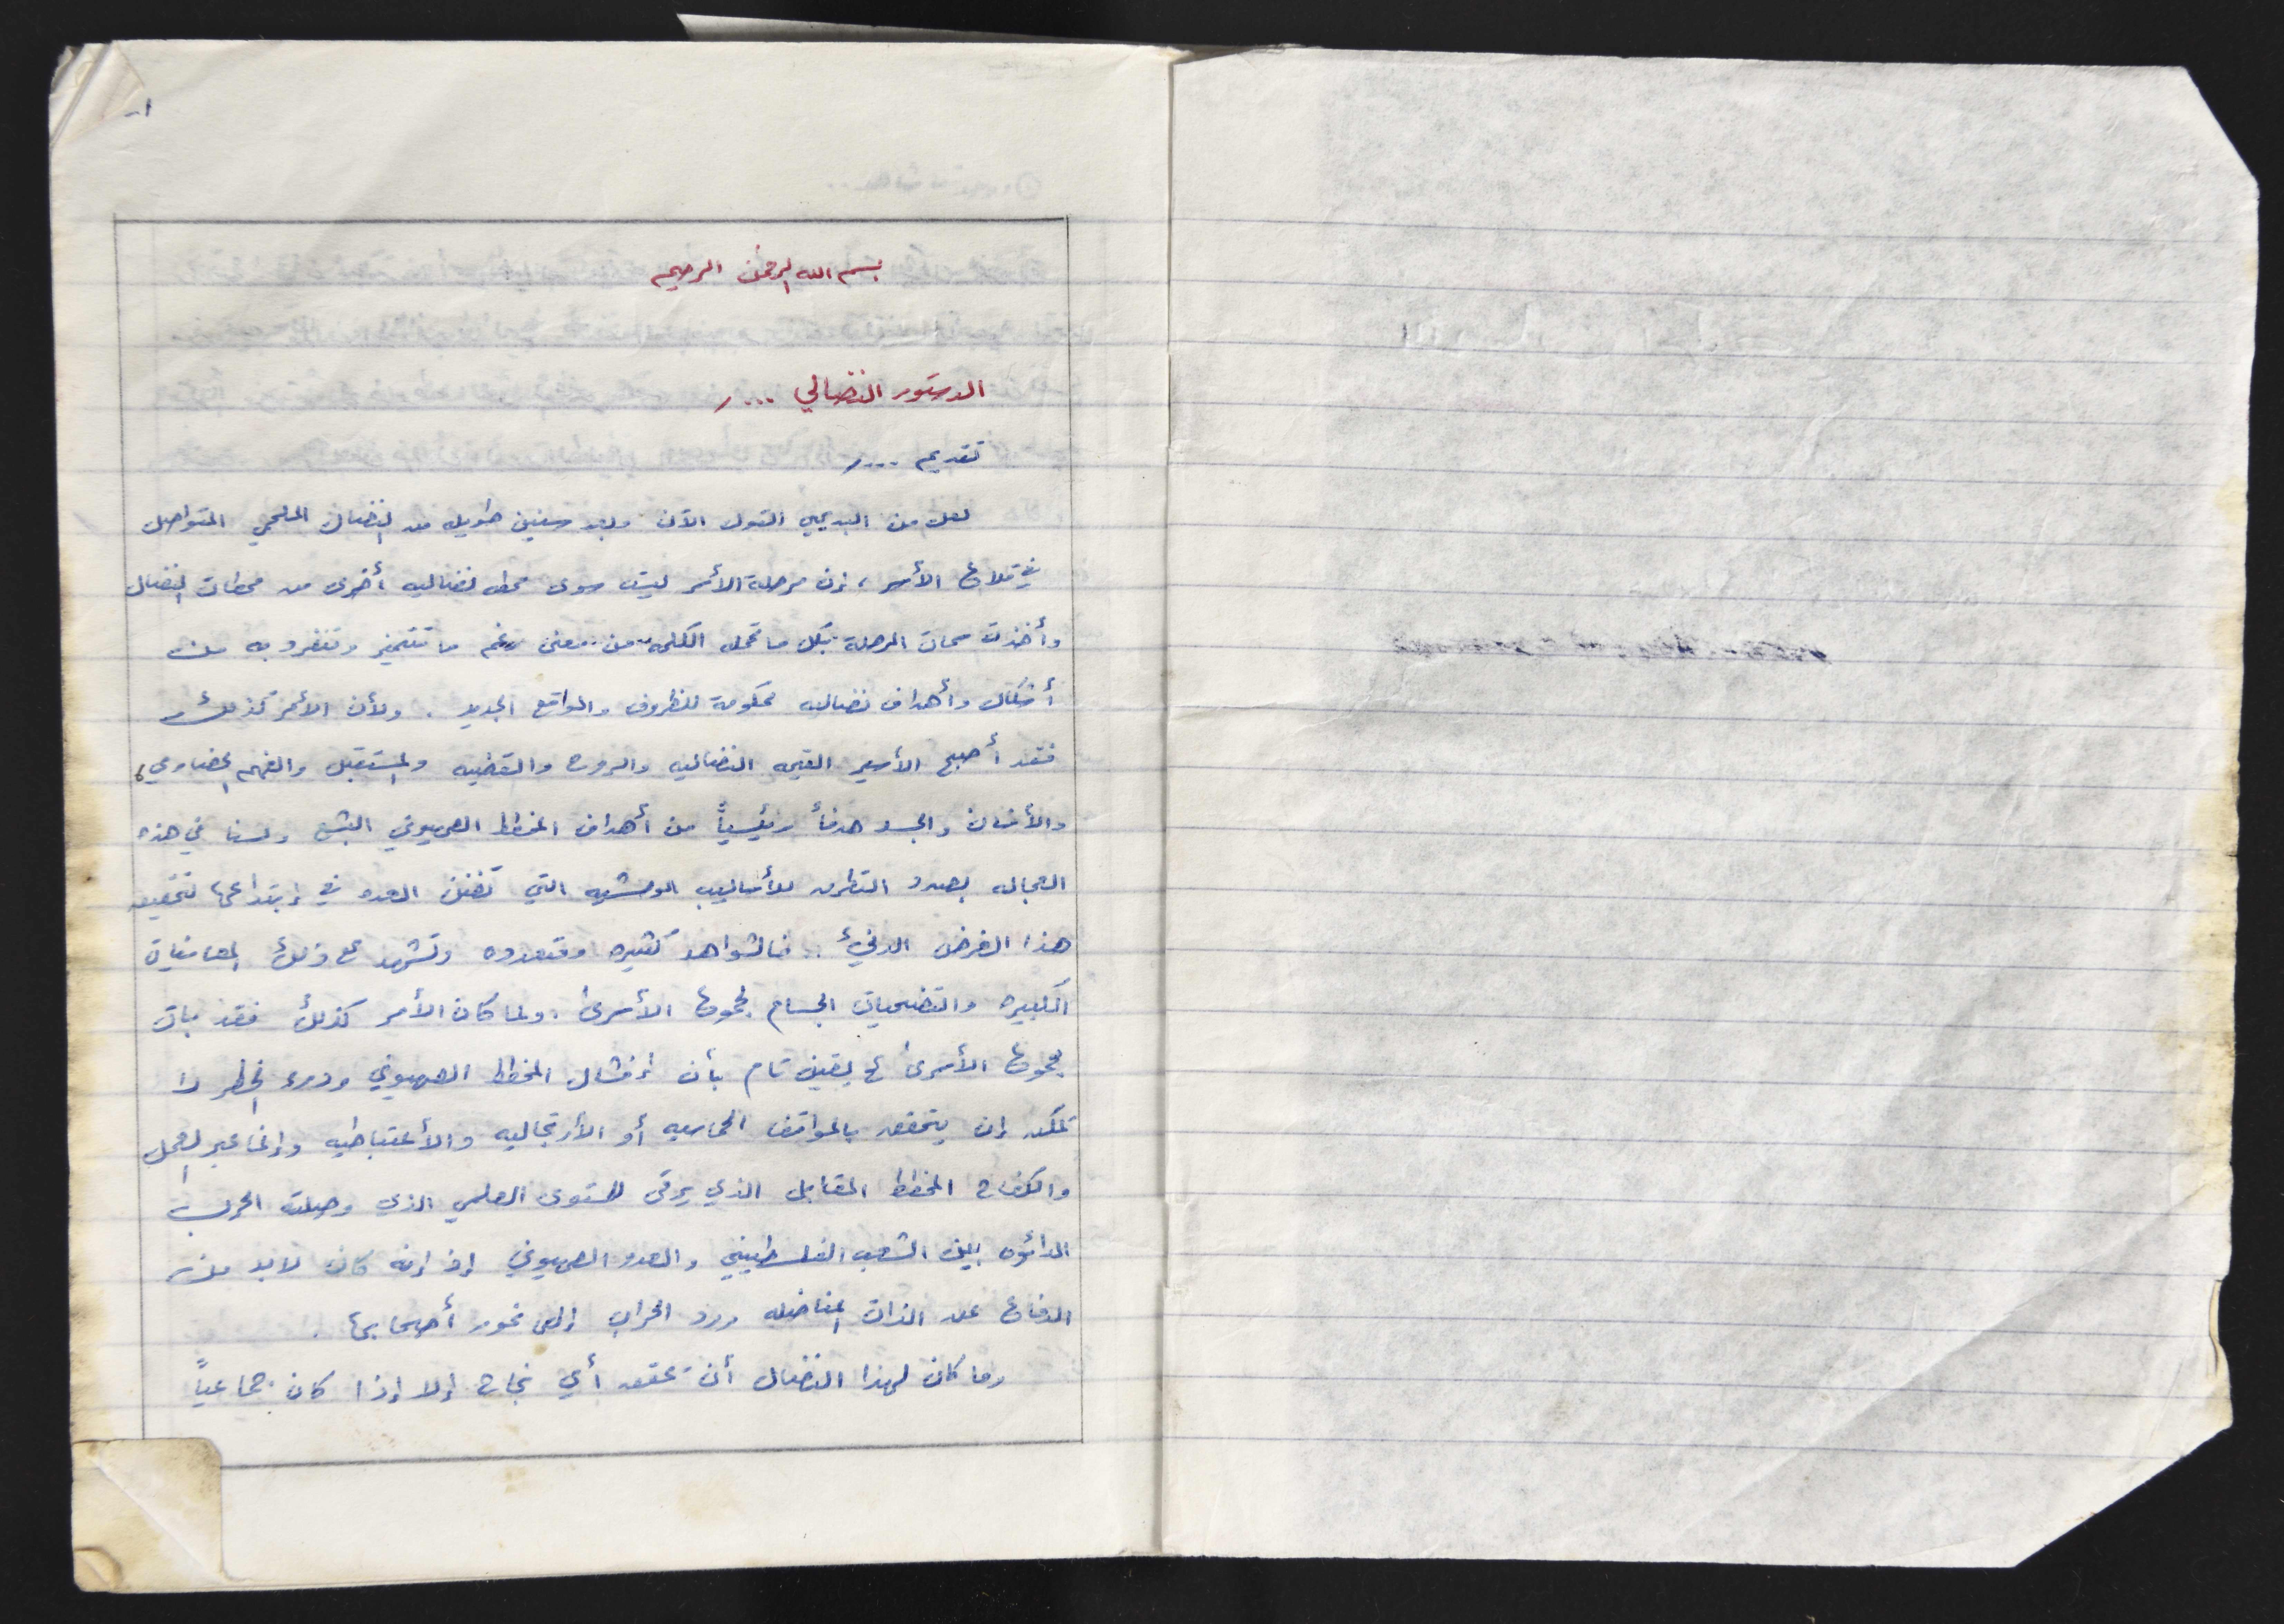 -١
بسم الله الرحمن الرحيم
الدستور النضالي ...
تقديم ....
لعل من البديهي القول الآن وبعد سنين طويله من النضال الملحمي المتواصل
في قلاع الأسر، إن مرحلة الأسر ليست سوى محطه نضاليه أخرى من محطات النضال
وأخذت سمات المرحلة بكل ما تحمله الكلمه من معنى رغم ما تتميز وتنفرد به من
أشكال وأهداف نضاليه محكومة للظروف والمواقع الجديد . ولأن الأمر كذلك
فقد أصبح الأسير القيمه النضاليه والروح والقضيه والمستقبل والفهم الحضاري،
والأنسان والجسد هدفاً رئيسياً من أهداف المخطط الصهيوني البشع ولسنا في هذه
العجاله بصدد التطرق للأساليب الوحشيه التي تفنن العدو في إبتداعها لتحقيق
هذا الغرض الدنيء .. فالشواهد كثيره ومتعدده وتشهد على ذلك المعانيات
الكبيره والتضحيات الجسام لجموع الأسرى . ولما كان الأمر كذلك فقد بات
بجموع الأسرى على يقين تام بأن إفشال المخطط الصهيوني ودرء الخطر لا
يمكن إن يتحقق بالمواقف الحماسيه أو الأرتجاليه والأعتباطيه وإنما عبر العمل
والكفاح المخطط المقابل الذي يرقى للمستوى العلمي الذي وصلت الحرب
الدائره بين الشعب الفلسطيني والعدو الصهيوني إذ إنه كان لابد من
الدفاع عن الذات المناضله ورد الحراب إلى نحور أصحابها .
وما كان لهذا النضال أن يحقق أي نجاح إلا إذا كان جماعياً